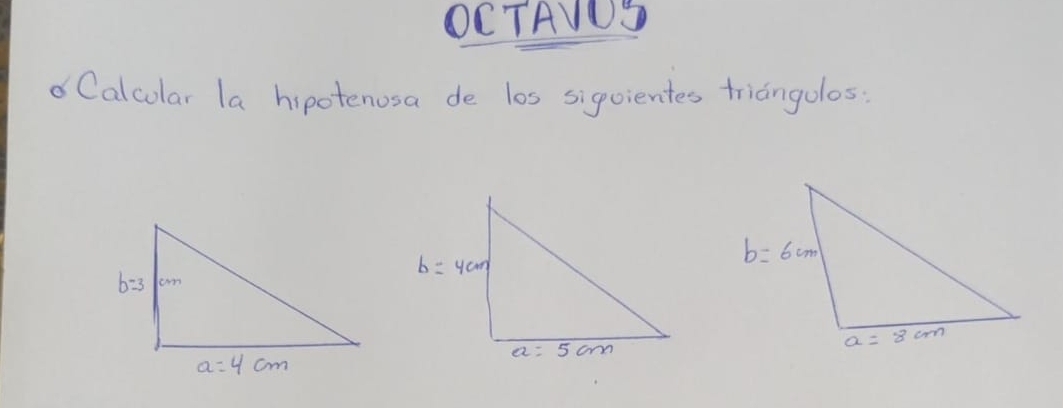 OCTAVOS
Calcular la hipotenusa de los siguientes triángulos:
b=3 cm
a=4 cm
b= 4cm
a= 5 cm
b= 6 cm
a= 8 cm